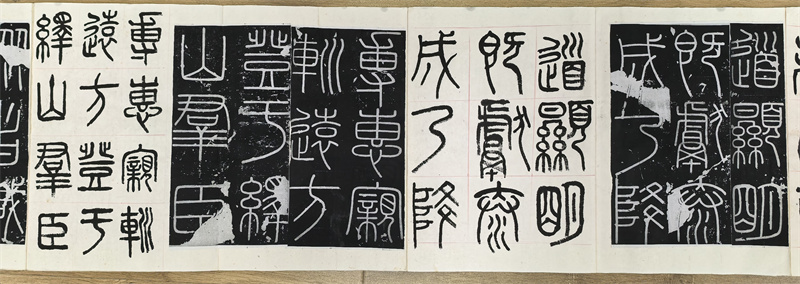 道顯明
既獻泰
成乃降
道顯明
既獻泰
成乃降
專惠寴
巡遠方
登于繹
山群臣
專惠寴巡
遠方登于
繹山群臣